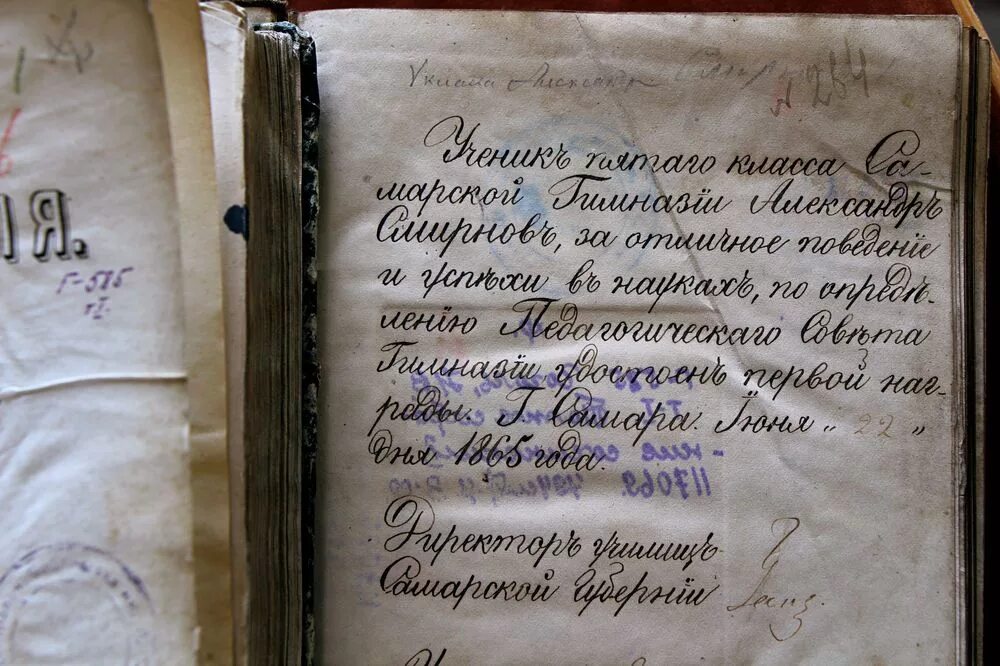 ІЯ.
Г-585
тI.
Александр
№ 264
Ученикъ пятаго класса Са-
марской Гимназіи Александръ
Смирновъ, за отличное поведеніе
и успѣхи въ наукахъ, по опредѣ-
ленію Педагогическаго Совѣта
Гимназіи удостоенъ первой наг-
рады. Г. Самара. Іюня „ 22 „
дня 1865 года.
117069
Директоръ училищъ
Самарской Губерніи